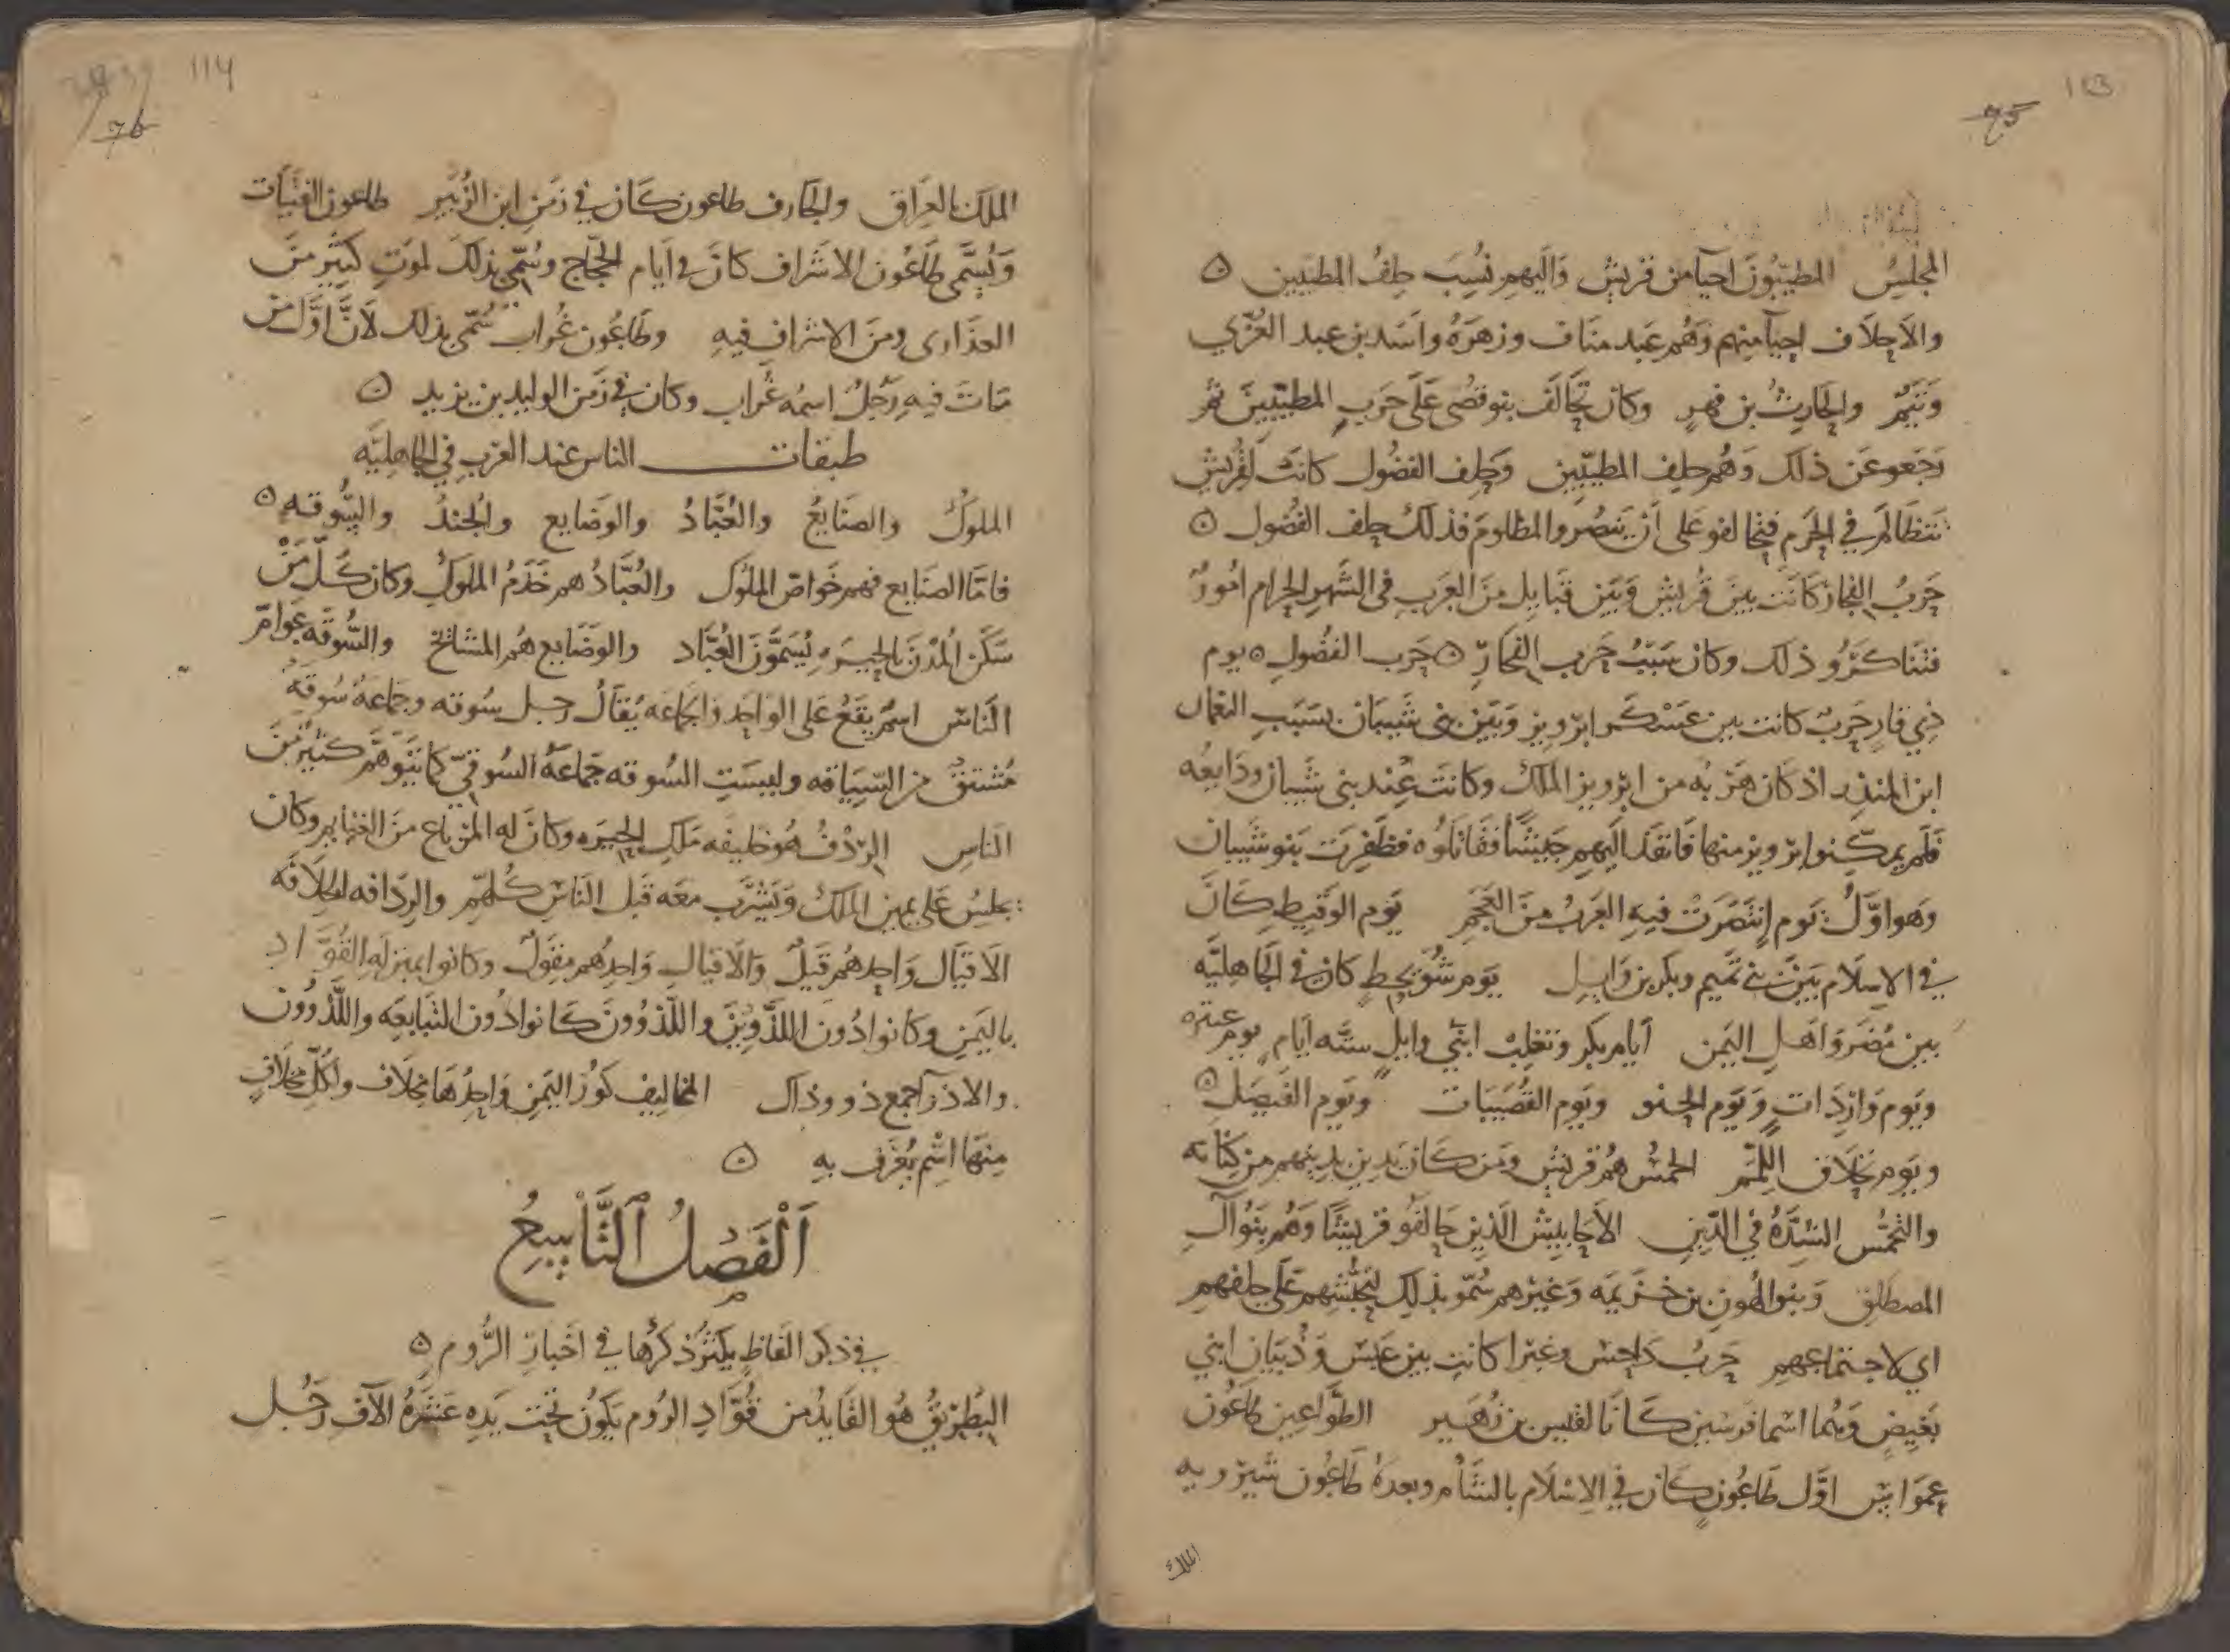 113
75
المجلس المطيبون احيا من قريش واليهم نسب حلف المطيبين
والاحلاف احيا منهم وهم عبد مناف وزهرة واسد بن عبد العزي
وتيم والحارث بن فهر وكان تحالف بنو قصى على حرب المطيبين ثم
رجعو عن ذلك وهم حلف المطيبين وحلف الفضول كانت لقريش
تتظالم في الحرم فتحالفو على أن ينصروا المظلوم فذلك حلف الفضول
حرب الفجار كانت بين قريش وبين قبايل من العرب في الشهر الحرام امور
فتناكرو ذلك وكان سبب حرب الفجار حرب الفضول يوم
ذي قار حرب كانت بين عسكر ابرويز وبين بني شيبان بسبب النعمان
ابن المنذر اذ كان هربه من ابرويز الملك وكانت عند بني شيبان ودايعه
فلم يمكنوا برويز منها فانفذ اليهم جيشا فقاتلوه فظفرت بنو شيبان
وهو اول يوم إنتصرت فيه العرب من العجم يوم الوقيط كان
في الاسلام بين بني تميم وبكر بن وايل يوم شويحط كان في الجاهلية
بين مضر واهل اليمن أيام بكر وتغلب ابني وايل ستة أيام يوم عنزه
ويوم واردات ويوم الحنو ويوم القصيبات ويوم الفصيل
ويوم تحلاق اللمم الحمس هم قريش ومن كان يدين بدينهم من كنانه
والتحمس الشدة في الدين الاحابيش الذين حالفو قريشا وهم بنو آل
المصطلق وبنو الهون بن خزيمه وغيرهم سمو بذلك لتحبشهم على حلفهم
اي لاجتماعهم حرب داحس وغبرا كانت بين عبس وذبيان ابني
بغيض وهما اسما فرسين كانا لقيس بن زهير الطواعين طاعون
عمواس اول طاعون كان في الاسلام بالشام وبعده طاعون شيرويه
الملك
114
76
الملك بالعراق والجارف طاعون كان في زمن ابن الزبير طاعون الفتيات
ويسمى طاعون الاشراف كان في أيام الحجاج وسمي بذلك لموت كثير من
العذارى ومن الاشراف فيه وطاعون غراب سمي بذلك لأن اول من
مات فيه رجل اسمه غراب وكان في زمن الوليد بن يزيد
طبقات الناس عند العرب في الجاهليه
الملوك والصنايع والعباد والوضايع والجند والسوقه
فاما الصنايع فهم خواص الملوك والعباد هم خدم الملوك وكان كل من
سكن المدن بالحيره يسمون العباد والوضايع هم المشائخ والسوقه عوام
الناس اسم يقع على الواحد والجماعه يقال رجل سوقه وجماعة سوقة
مشتق من السياقه وليست السوقه جماعة السوقي كما يتوهم كثير من
الناس الردف هو خليفه ملك الحيره وكان له المرباع من الغنايم وكان
يجلس على يمين الملك ويشرب معه قبل الناس كلهم والردافه الخلافه
الاقيال واحدهم قيل والاقيال واحدهم مقول وكانوا بمنزله القواد
باليمن وكانوا دون اللذوين واللذوون كانوا دون التبابعه واللذوون
والاذوآ جمع ذو وذاك المخاليف كور اليمن واحدها مخلاف ولكل مخلاف
منها اسم يعرف به
الفصل التاسع
في ذكر الفاظ يكثر ذكرها في اخبار الروم
البطريق هو القايد من قواد الروم يكون تحت يده عشرة الآف رجل